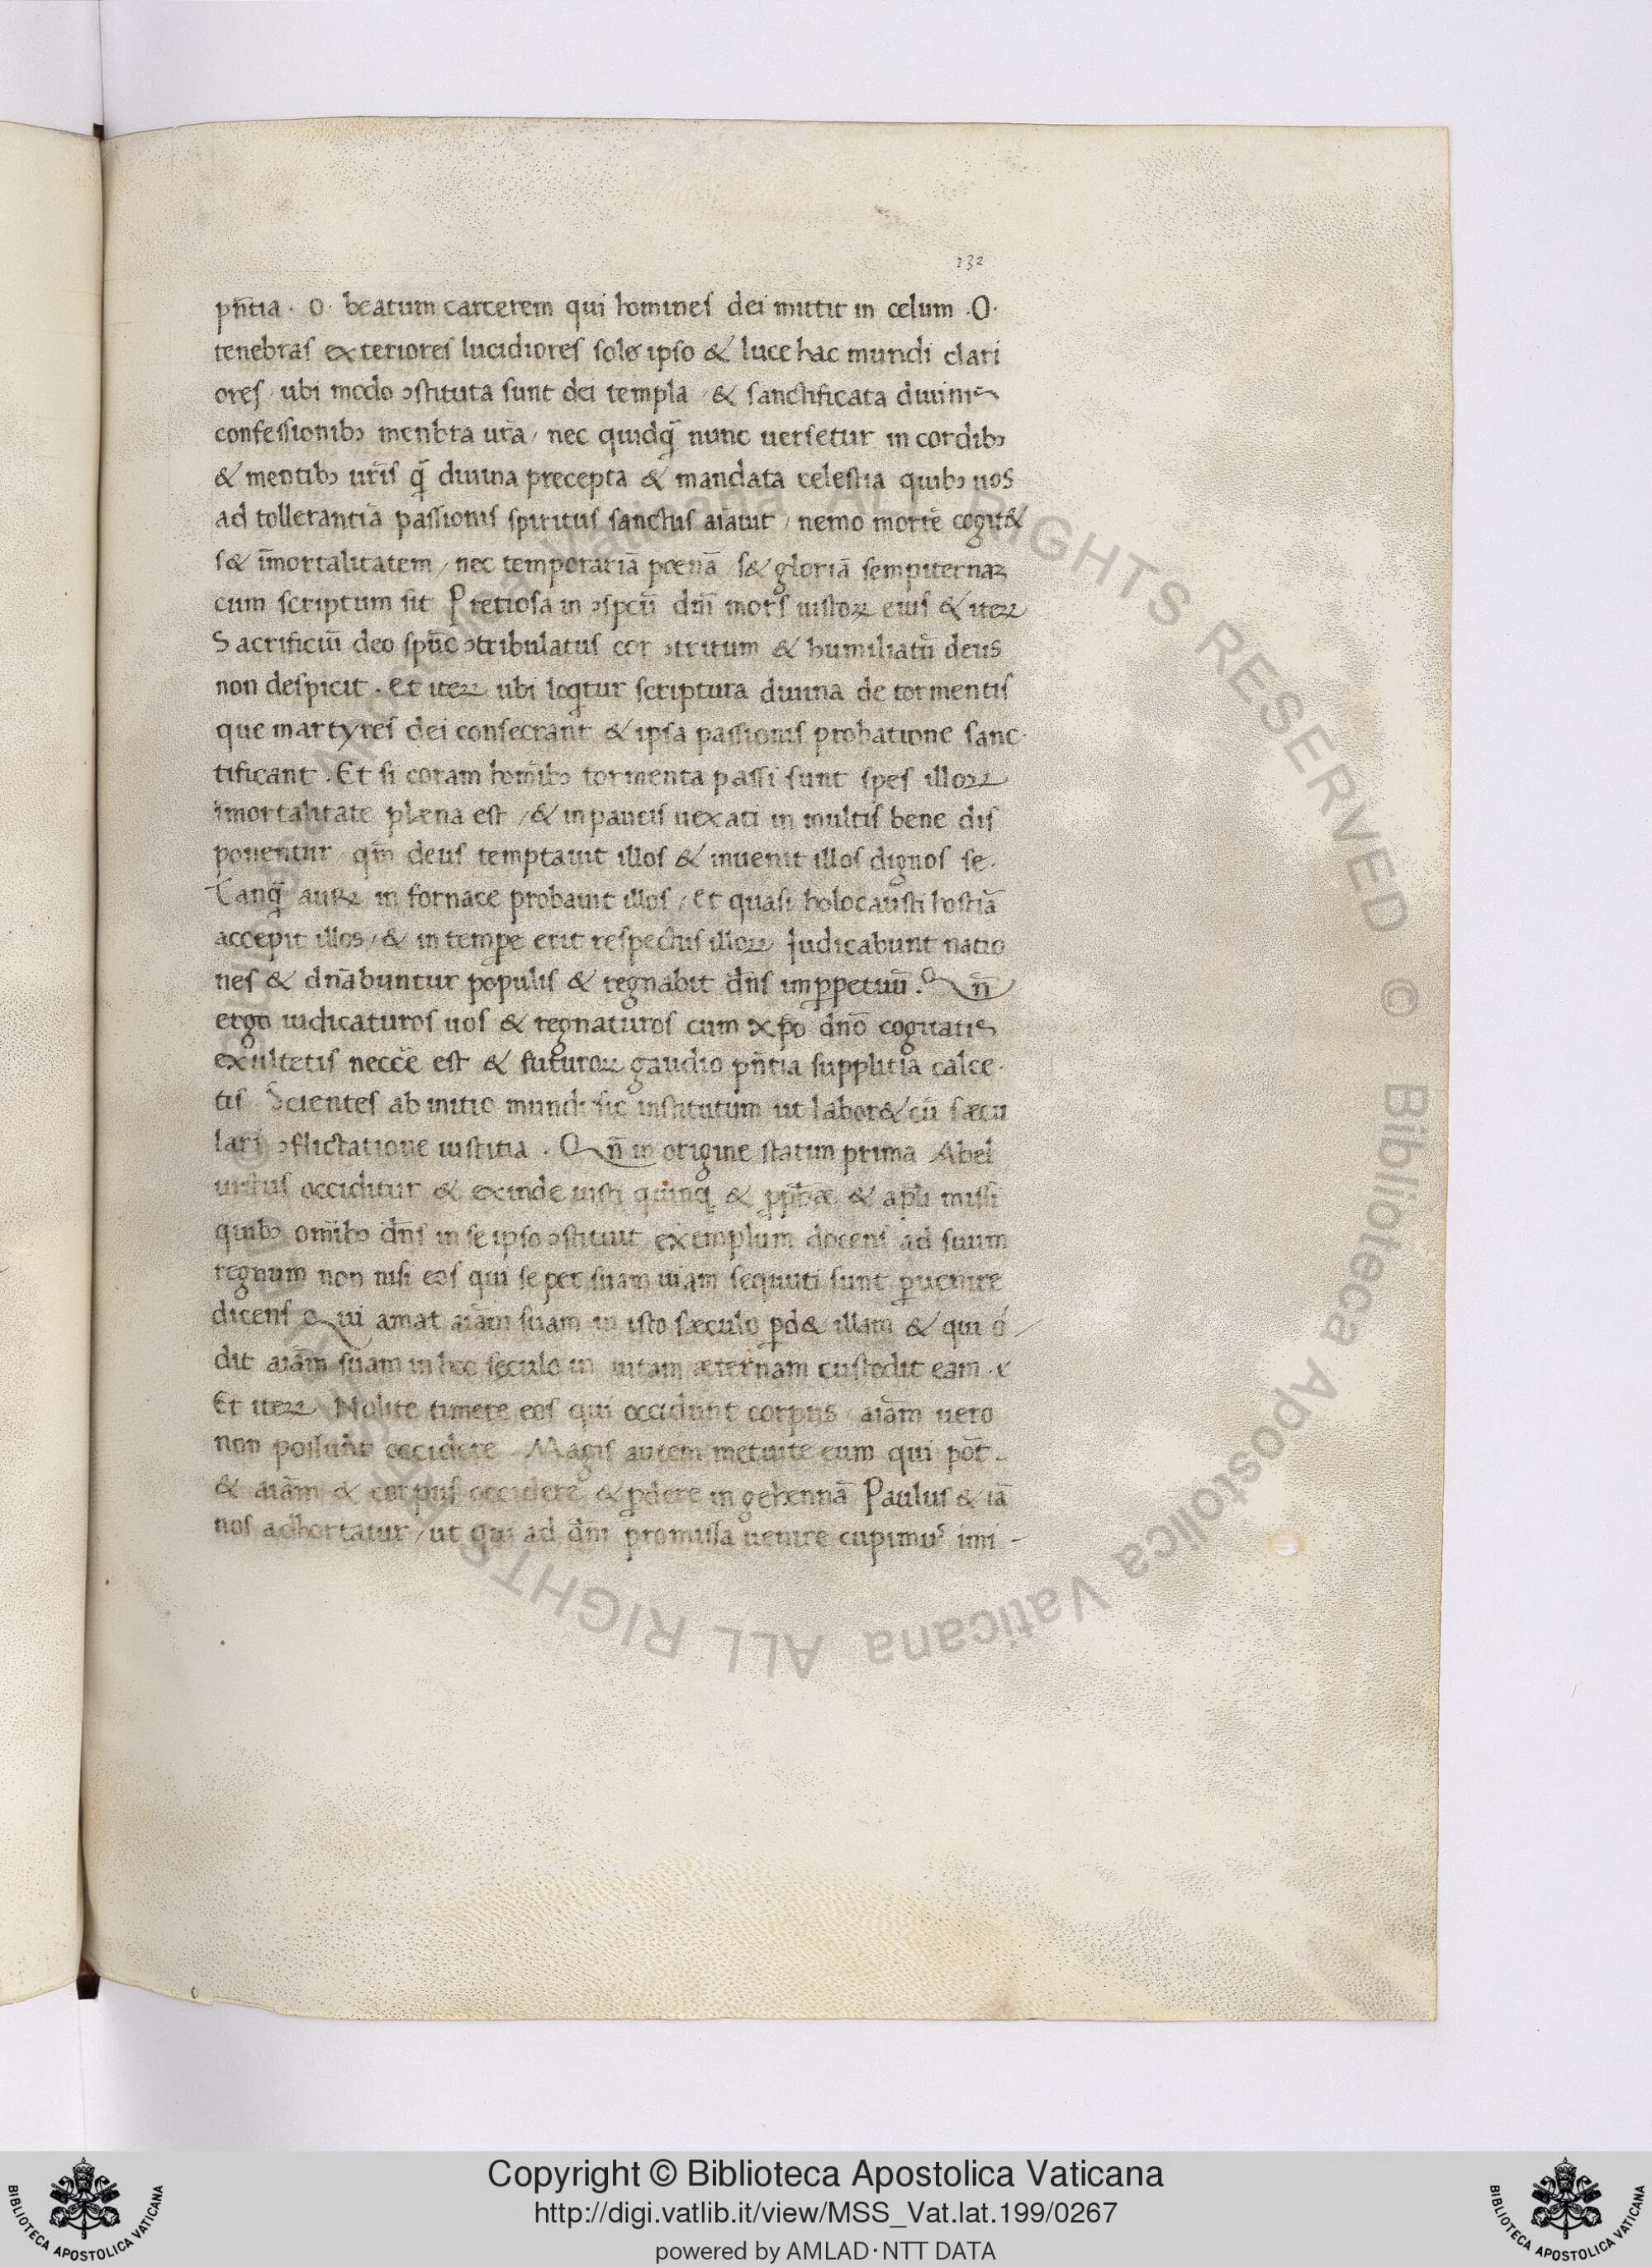 132
pn̄tia · O · beatum carcerem qui homines dei mittit in celum · O ·
tenebras exteriores lucidiores sole ipso & luce hac mundi clari
ores / ubi modo ɔstituta sunt dei templa / & sanctificata diuinis
confessionibꝫ menbra ur̄a / nec quidq̄ nunc uersetur in cordibꝫ
& mentibꝫ ur̄is q̄ diuina precepta & mandata celestia quibꝫ uos
ad tollerantiā passionis spiritus sanctus aīauit / nemo mortē cogit&
s& īmortalitatem / nec temporariā pœnā / s& gloriā sempiternaꝫ
cum scriptum sit Pretiosa in ɔspcū dn̄i mors iustoꝝ eius & iteꝝ
Sacrificiū deo spūc ɔtribulatus cor ɔtritum & humiliatū deus
non despicit · Et iteꝝ ubi loq̄tur scriptura diuina de tormentis
que martyres dei consecrant & ipsa passionis probatione sanc·
tificant · Et si coram homībꝫ tormenta passi sunt spes illoꝝ
īmortalitate plæna est / & in paucis uexati in multis bene dis
ponentur / qm̄ deus temptauit illos & inuenit illos dignos se ·
Tanq̄ auꝝ in fornace probauit illos / Et quasi holocausti hostiā
accepit illos / & in temꝑe erit respectus illoꝝ Judicabunt natio
nes & dn̄abuntur populis & regnabit dn̄s imꝑpetuū · Qn̄
ergo iudicaturos uos & regnaturos cum xp̄o dn̄o cogitatis
exultetis neccē est & futuroꝝ gaudio pn̄tia supplitia calce·
tis Scientes ab initio mundi sic institutum ut labor& cū sæcu
lari ɔflictatione iustitia · Qn̄ in origine statim prima Abel
iustus occiditur & exinde iusti quinq̄ & ꝓph̄æ & apl̄i missi
quibꝫ omībꝫ dn̄s in se ipso ɔstituit exemplum docens ad suum
regnum non nisi eos qui se per suam uiam sequuti sunt ꝑuenire
dicens Qui amat aīam suam in isto sæculo ꝑd& illam & qui o
dit aīam suam in hoc seculo in uitam æternam custodit eam ·
Et iteꝝ Nolite timere eos qui occidunt corpus / aīam uero
non possunt occidere Magis autem metuite eum qui pōt ·
& aīam & corpus occidere & ꝑdere in gehennā Paulus & iā
nos adhortatur / ut qui ad dn̄i promissa uenire cupimus imi -
Copyright © Biblioteca Apostolica Vaticana
http://digi.vatlib.it/view/MSS_Vat.lat.199/0267
powered by AMLAD·NTT DATA
BIBLIOTECA APOSTOLICA VATICANA
BIBLIOTECA APOSTOLICA VATICANA